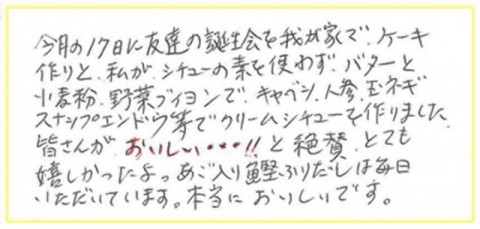 今月の17日に友達の誕生会を我が家で、ケーキ
作りと、私が、シチューの素を使わず、バターと
小麦粉、野菜ブイヨンで、キャベツ、人参、玉ネギ
スナップエンドウ等でクリームシチューを作りました
皆さんが、おいしい・・・!!と絶賛、とても
嬉しかったよっ あご入り鰹ふりだしは毎日
いただいています。本当においしいです。